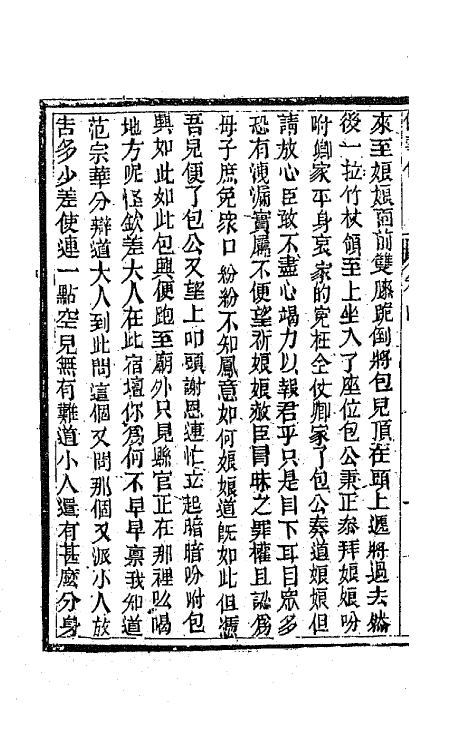 來至娘娘面前雙膝跪倒將包兒頂在頭上遞將過去然
後一拉竹杖領至上坐入了座位包公秉正參拜娘娘吩
咐卿家平身哀家的寃枉全仗卿家了包公奏道娘娘但
請放心臣敢不盡心竭力以報君乎只是目下耳目眾多
恐有洩漏實屬不便望祈娘娘赦臣冒昧之罪權且認為
母子庶免眾口紛紛不知鳳意如何娘娘道旣如此但憑
吾兒便了包公又望上叩頭謝恩連忙立起暗暗吩咐包
興如此如此包興便跑至廟外只見縣官正在那裡吆喝
地方呢怪欽差大人在此宿壇你為何不早早稟我知道
范宗華分辯道大人到此問這個又問那個又派小人放
告多少差使連一點空兒無有難道小人還有甚麼分身